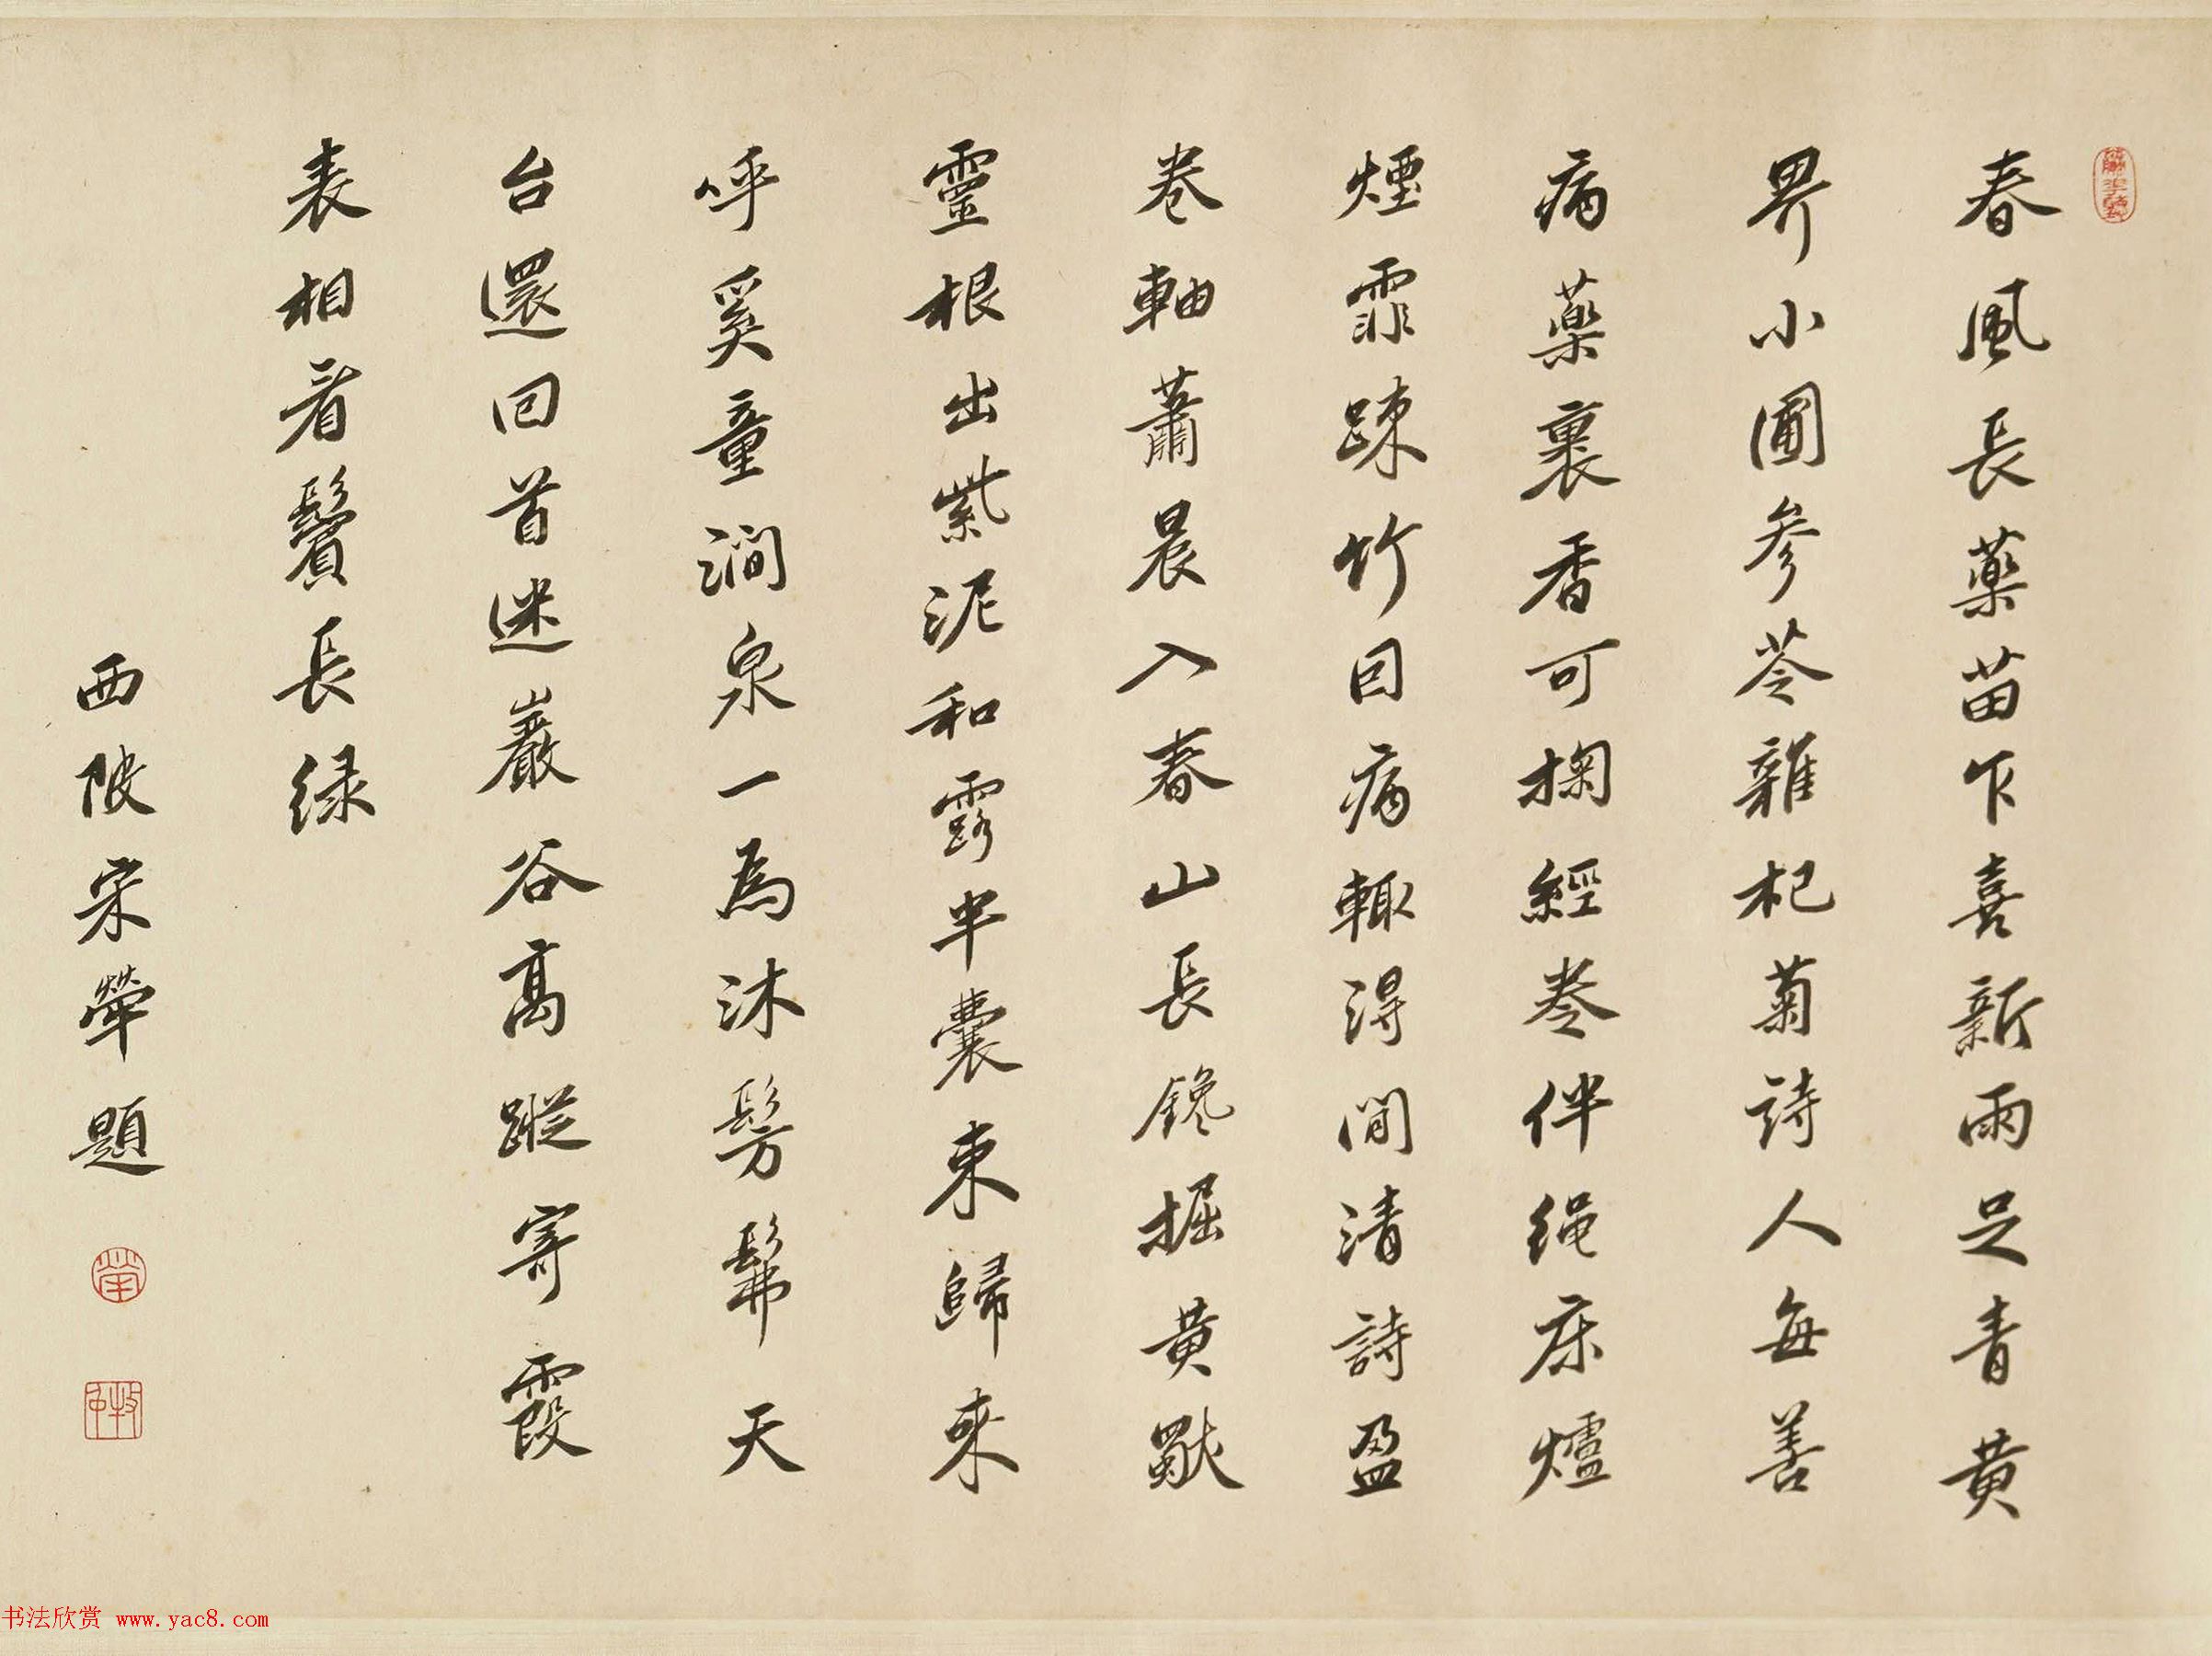 春風長藥苗乍喜新雨足青黄
界小圃參苓雜杞菊詩人每善
病藥裏香可掬經卷伴绳床爐
煙霏疎竹因病輙得閒清詩盈
卷軸蕭晨入春山長鑱掘黄獨
靈根出紫泥和露半囊束歸來
呼奚童澗泉一為沐髣髴天
台還回首迷巖谷高蹤寄霞
表相看鬢長緑
西陂宋犖題
书法欣赏 www.yac8.com